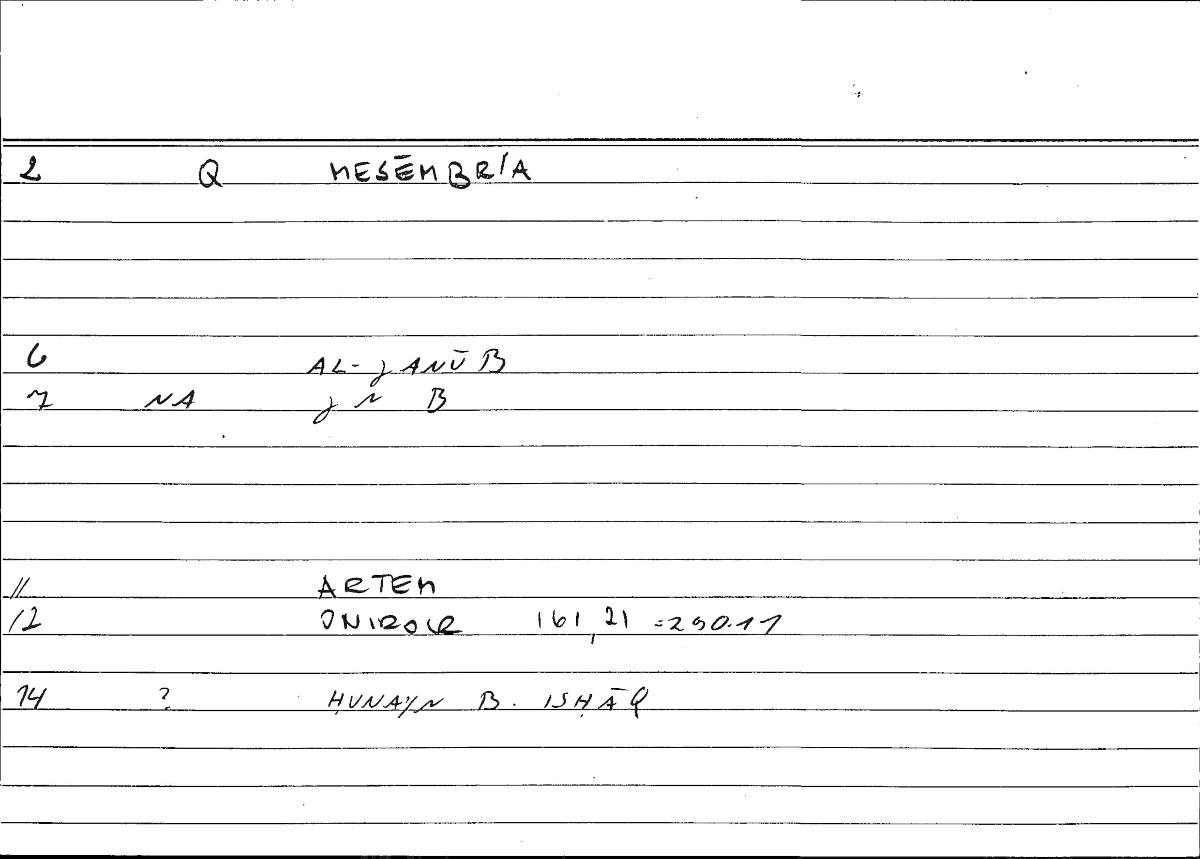 2 Q MESĒMBRIA
6 AL-JANŪB
7 NA J N B
11 ARTEM
12 ONIROCR 161,21 =290.11
14 ? ḤUNAYN B. ISḤĀQ